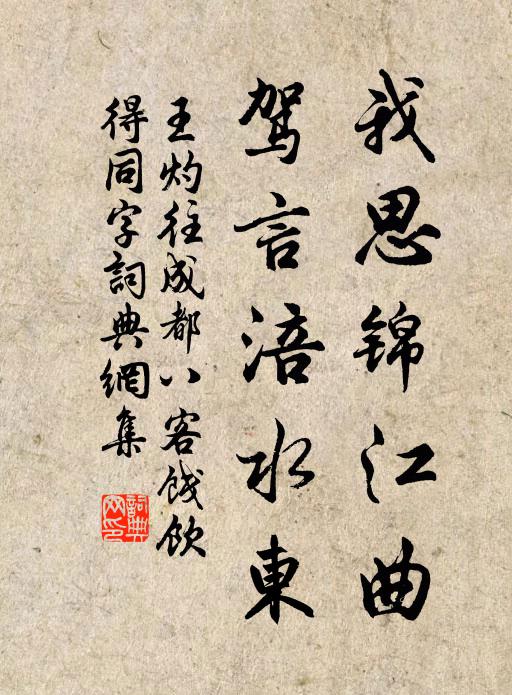 我思锦江曲
驾言涪水東
王灼往成都八客饯饮
得同字詞典網集
詞典网印